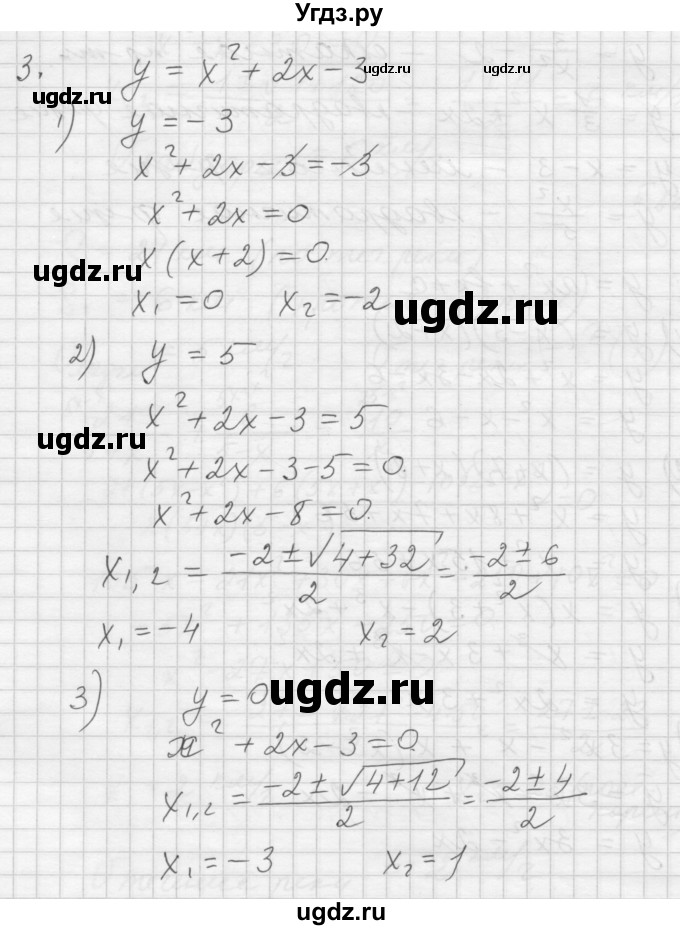 Угдз.ру
3. y = x² + 2x - 3
ugdz.ru ugdz.ru ugdz.ru
1) y = -3
x² + 2x - 3 = -3
x² + 2x = 0
x(x+2) = 0.
ugdz.ru
x₁ = 0 x₂ = -2
ugdz.ru
2) y = 5
x² + 2x - 3 = 5.
ugdz.ru
x² + 2x - 3 - 5 = 0.
x² + 2x - 8 = 0.
x₁,₂ = (-2 ± √(4+32))/2 = (-2 ± 6)/2
x₁ = -4 x₂ = 2
3) y = 0
ugdz.ru
x² + 2x - 3 = 0.
x₁,₂ = (-2 ± √(4+12))/2 = (-2 ± 4)/2
x₁ = -3 x₂ = 1
ugdz.ru